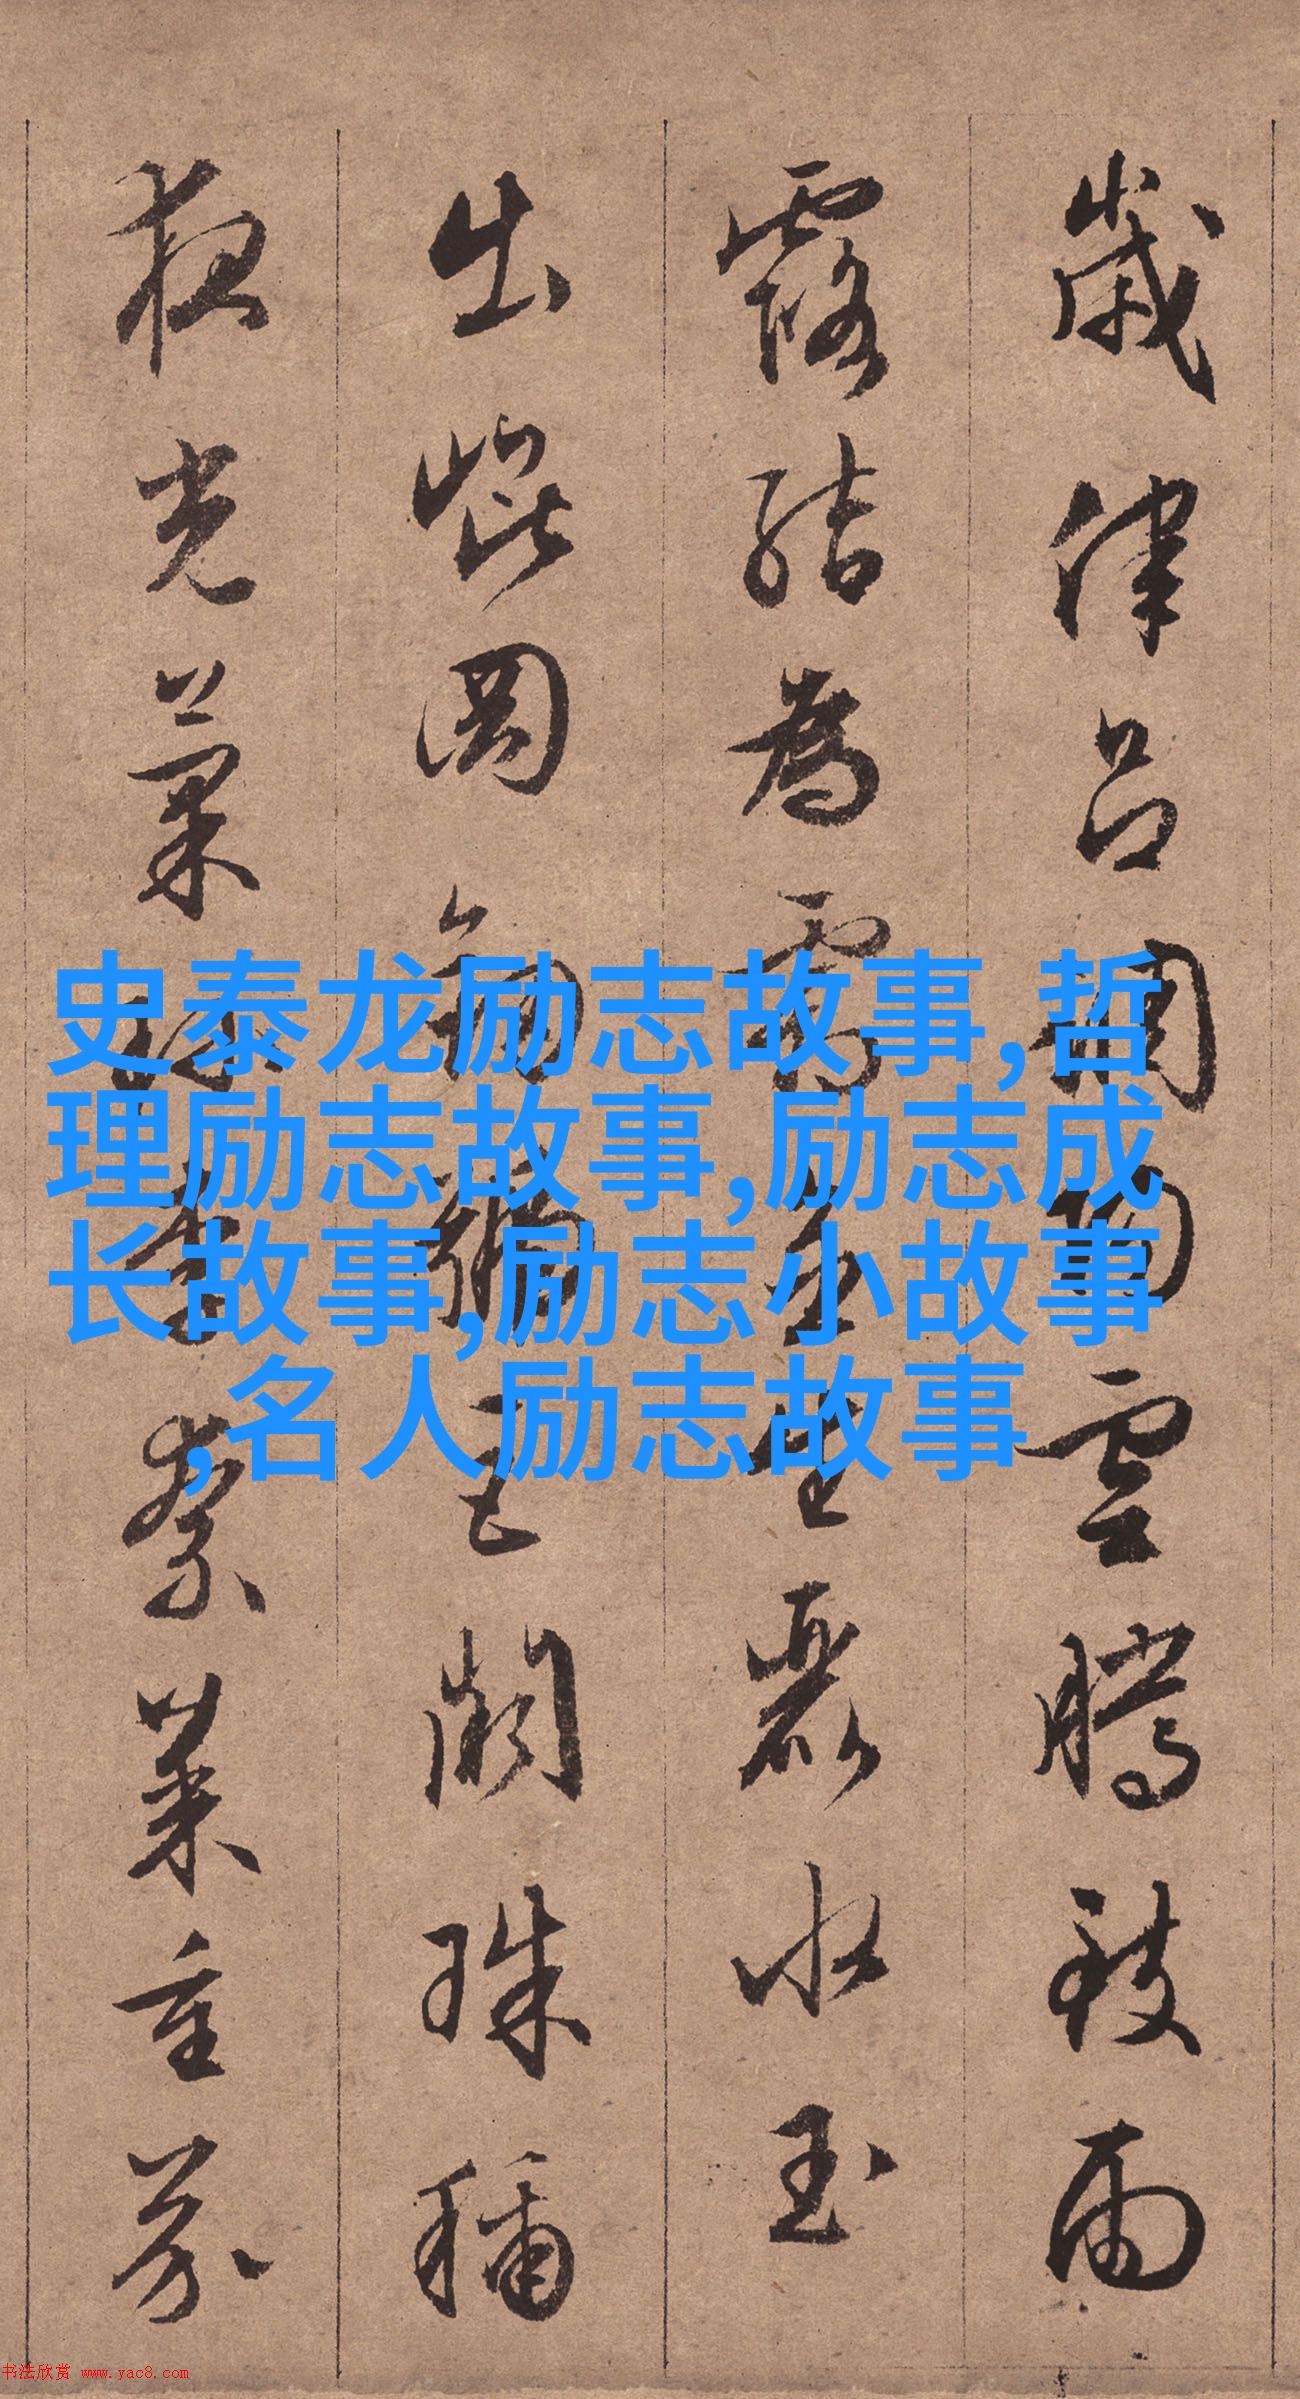 歲律呂調陽雲騰致雨
露結為霜金生麗水玉
出崐岡劍號巨闕珠稱
夜光菓珍李柰菜重芥
史泰龙励志故事,哲
理励志故事,励志成
长故事,励志小故事
,名人励志故事
书法欣赏 www.yac8.com